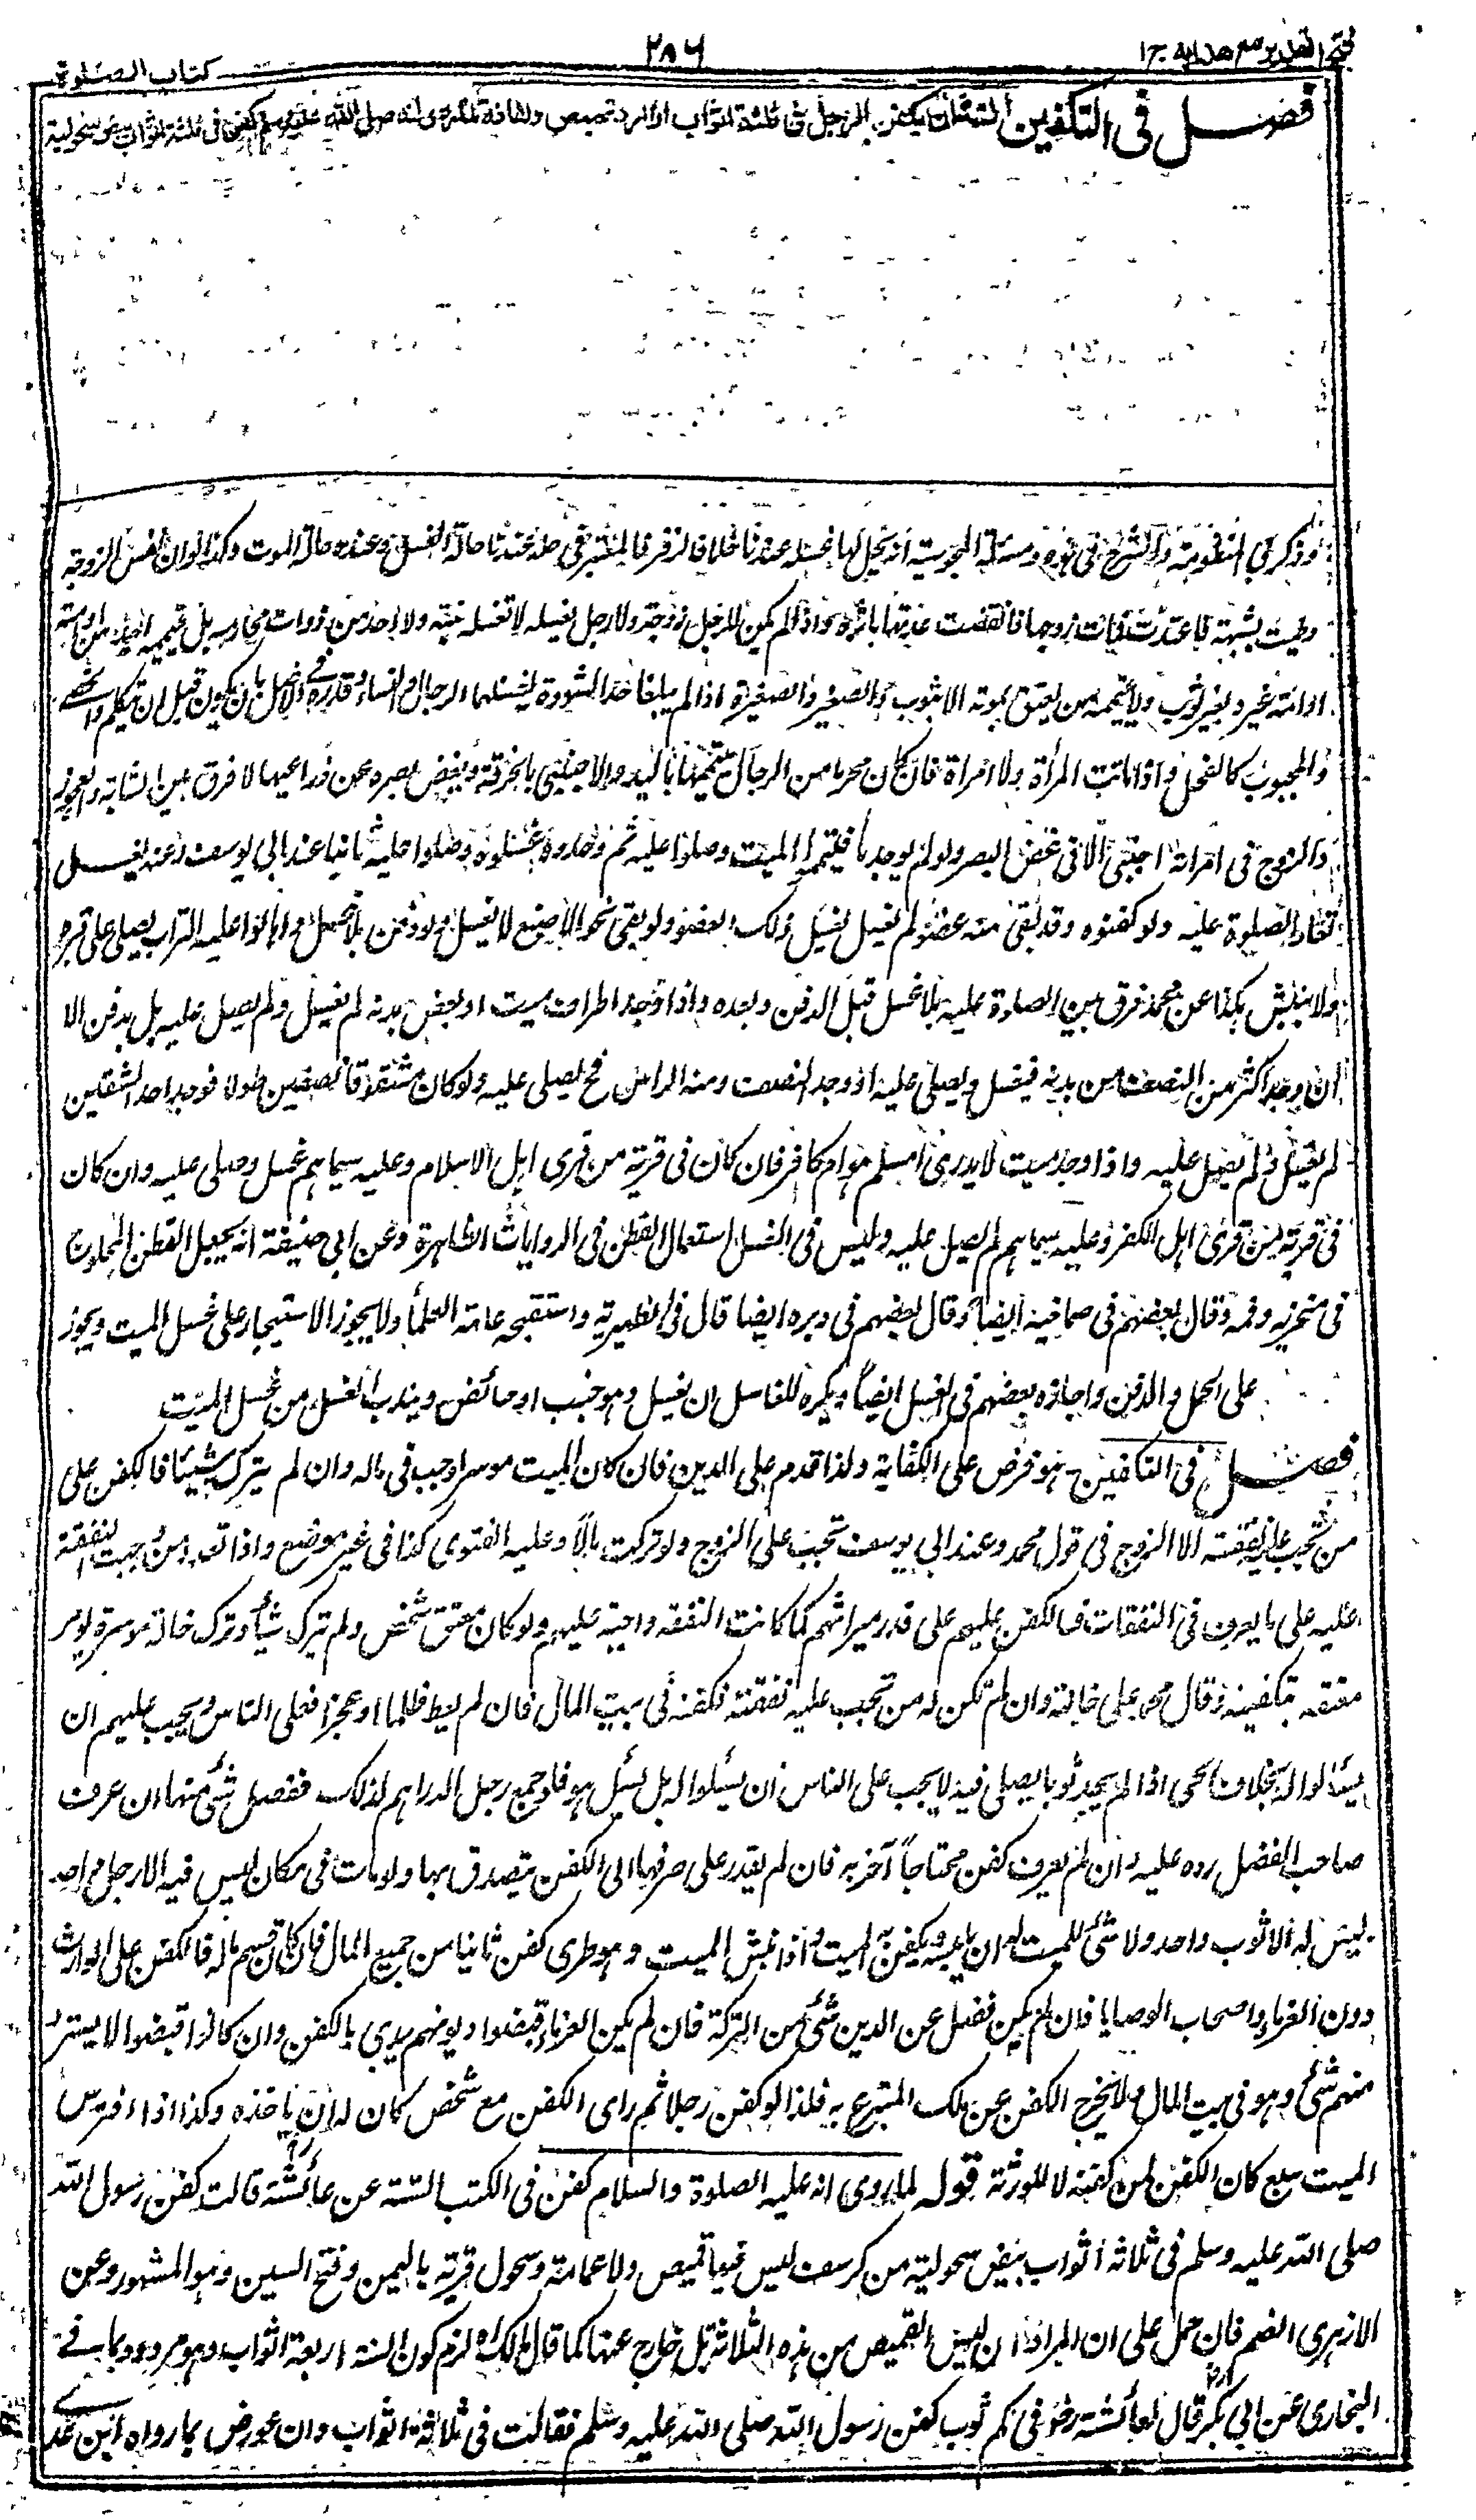 فتح القدير مع هدايه ج ١
٢٨٦
كتاب الصلوة
فصل فى التكفين السنة ان يكفن الرجل فى ثلثة اثواب ازار وقميص ولفافة لما روى انه صلى الله عليه وسلم كفن فى ثلثة اثواب بيض سحولية
وذكر فى المنظومة والشرح فى هذه ومسئلة المجوسية انه يحل لها غسله عندنا خلافا لزفر فالمعتبر فى حله عندنا حالة الغسل وعنده حالة الموت وكذا لو ان نفس الزوجة
وطيت بشبهة فاعتدت فمات زوجها فانقضت عدتها باثره واذا لم يكن للرجل زوجة ولا رجل يغسله لا تغسله بنته ولا احد من ذوات محارمه بل تيممه احدهن او امته
او امة غيره بغير ثوب ولا تيممه من تعتق بموته الا بثوب والصغير والصغيرة اذا لم يبلغا حد الشهوة يغسلهما الرجال والنساء وقدره فى الاصل بان يكون قبل ان يتكلم والخصى
والمجبوب كالفحل واذا ماتت المرأة ولا امراة فان كان محرما من الرجال يتيممها باليد والاجنبى بالخرقة ويغض بصره عن ذراعيها لا فرق بين الشابة والعجوز
والزوج فى امراته اجنبى الا فى غض البصر ولو لم يوجد ما فيتمموا الميت وصلوا عليه ثم وجدوه غسلوه وصلوا عليه ثانيا عند ابى يوسف وعنه يغسل
تعاد الصلوة عليه ولو كفنوه وقد بقى منه عضو لم يغسل يغسل ذلك العضو ولو بقى نحو الاصبع لا يغسل ولو دفن بلا غسل واهالوا عليه التراب يصلى على قبره
ولا ينبش هكذا عن محمد فرق بين الصلاة عليه بلا غسل قبل الدفن وبعده واذا وجد اطراف ميت او بعض بدنه لم يغسل ولم يصل عليه بل يدفن الا
ان وجد اكثر من النصف من بدنه فيغسل ويصلى عليه او وجد النصف ومنه الراس فح يصلى عليه ولو كان مشقوقا نصفين طولا فوجد احد الشقين
لم يغسل ولم يصل عليه واذا وجد ميت لا يدرى أمسلم هو ام كافر فان كان فى قرية من قرى اهل الاسلام وعليه سيماهم غسل وصلى عليه وان كان
فى قرية من قرى اهل الكفر وعليه سيماهم لم يصل عليه وليس فى الغسل استعمال القطن فى الروايات الظاهرة وعن ابى حنيفة انه يجعل القطن المحلوج
فى منخريه وفمه وقال بعضهم فى صماخيه ايضا وقال بعضهم فى دبره ايضا قال فى الظهيرية واستقبحه عامة العلمأ ولا يجوز الاستيجار على غسل الميت ويجوز
على الحمل والدفن واجازه بعضهم فى الغسل ايضاً ويكره للغاسل ان يغسل وهو جنب او حائض ويندب الغسل من غسل الميت
فصل فى التكفين هو فرض على الكفاية ولذا قدم على الدين فان كان الميت موسرا وجب فى ماله وان لم يترك شيئا فالكفن على
من تجب عليه نفقته الا الزوج فى قول محمد وعند ابى يوسف تجب على الزوج ولو تركت مالا وعليه الفتوى كذا فى غير موضع واذا تعدد من وجبت النفقة
عليه على ما يعرف فى النفقات فالكفن عليهم على قدر ميراثهم كما كانت النفقه واجبة عليهم ولو كان معتق شخص ولم يترك شيأ وترك خالة موسرة يؤمر
معتقه بتكفينه وقال محمد على خالته وان لم تكن له من تجب عليه نفقته فكفنه فى بيت المال فان لم يعط ظلما او عجزا فعلى الناس ويجب عليهم ان
يسئالوا له بخلاف الحى اذا لم يجد ثوبا يصلى فيه لا يجب على الناس ان يسئلوا له بل يسئل هو فلو جمع رجل الدراهم لذلك ففضل شئ منها ان عرف
صاحب الفضل رده عليه وان لم يعرف كفن محتاجاً آخر به فان لم يقدر على صرفها الى الكفن يتصدق بها ولو مات فى مكان ليس فيه الا رجل واحد
ليس له الا ثوب واحد ولا شئ للميت له ان يلبسه ولا يكفن به الميت واذا نبش الميت وهو طرى كفن ثانيا من جميع المال فان كان قسم ماله فالكفن على الوارث
دون الغرماء واصحاب الوصايا فان لم يكن فضل عن الدين شئ من التركة فان لم يكن الغرماء قبضوا ديونهم بدى بالكفن وان كانوا قبضوا لا يسترد
منهم شئ وهو فى بيت المال ولا يخرج الكفن عن ملك المتبرع به فلذا لو كفن رجلا ثم راى الكفن مع شخص كان له ان ياخذه وكذا اذا افترس
الميت سبع كان الكفن لمن كفنه لا للورثة قوله لما روى انه عليه الصلوة والسلام كفن فى الكتب الستة عن عائشة قالت كفن رسول الله
صلى الله عليه وسلم فى ثلاثة أثواب بيض سحولية من كرسف ليس فيها قميص ولا عمامة وسحول قرية باليمن وفتح السين وهو المشهور وعن
الازهرى الضم فان حمل على ان المراد ان ليس القميص من هذه الثلاثة بل خارج عنها كما قال مالك رح لزم كون السنة اربعة اثواب وهو مردود بما فى
البخارى عن ابى بكر قال لعائشة رض فى كم ثوب كفن رسول الله صلى الله عليه وسلم فقالت فى ثلاثة اثواب وان عورض بما رواه ابن عدى